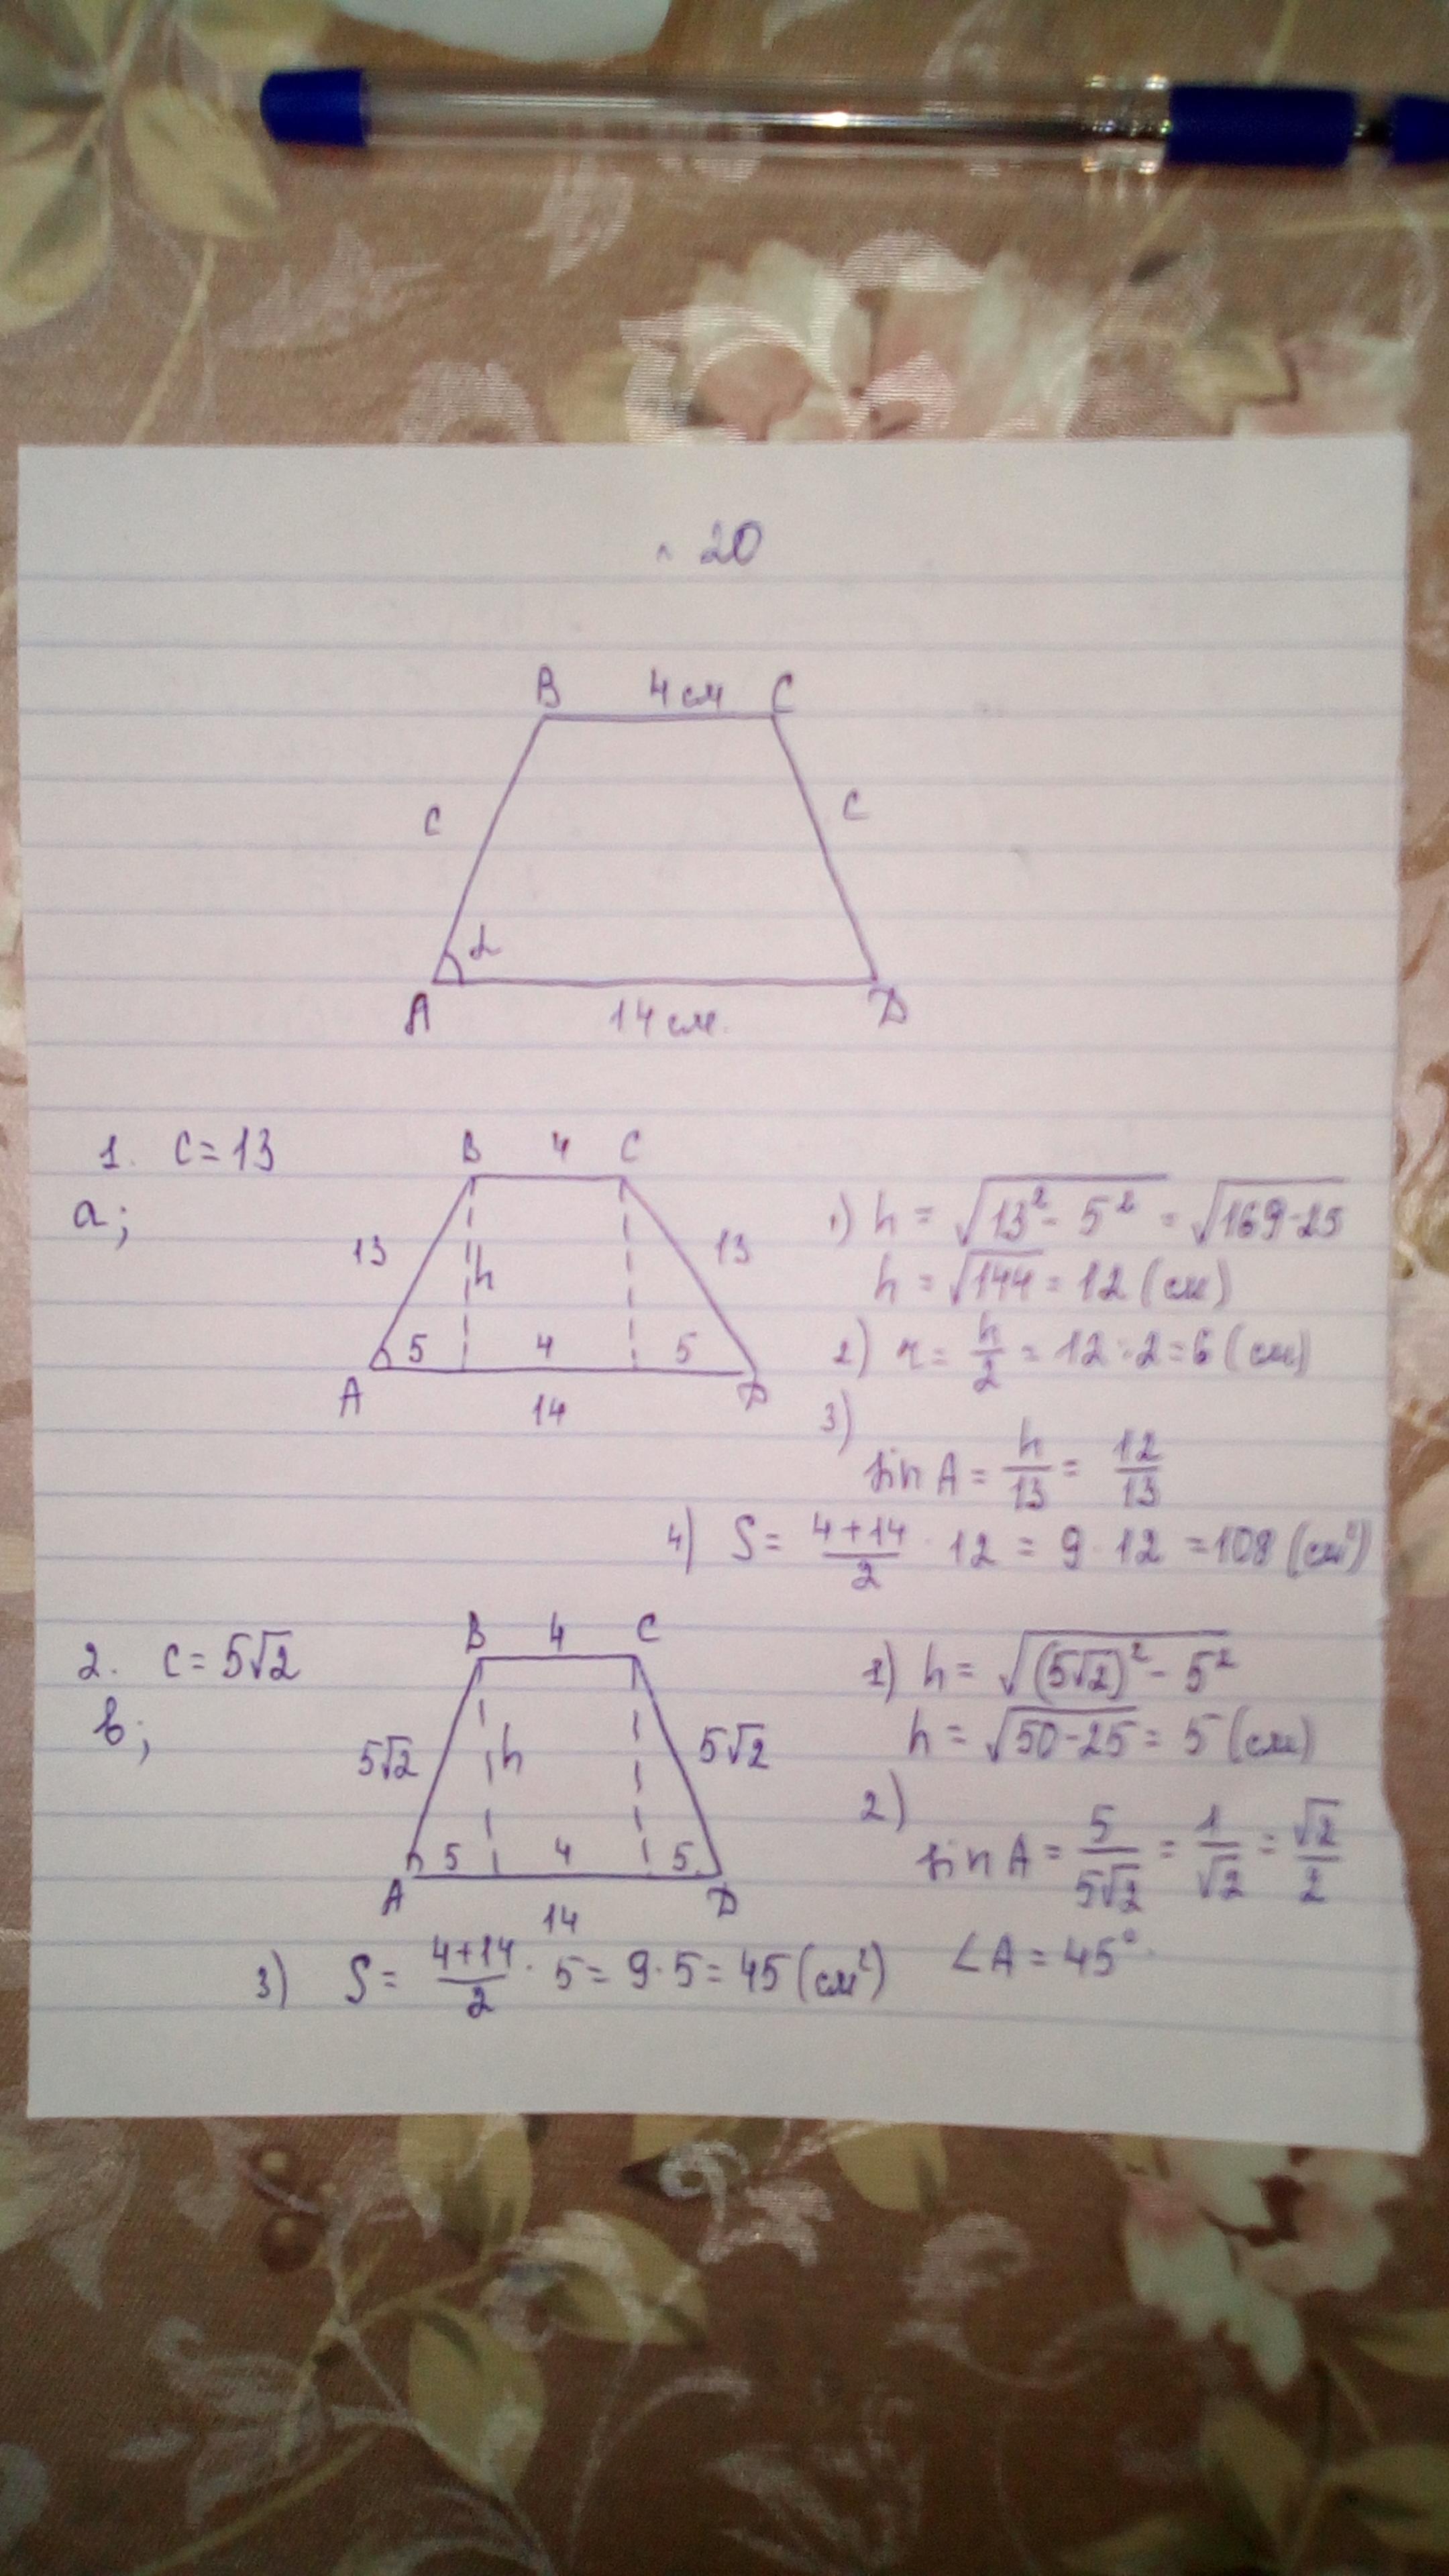 20
B 4 см C
C C
α
A 14 см. D
1. C = 13
a;
B 4 C
13 h 13
5 4 5
A 14 D
1) h = √(13² - 5²) = √(169-25)
h = √144 = 12 (см)
2) r = h/2 = 12 : 2 = 6 (см)
3)
sin A = h/13 = 12/13
4) S = (4+14)/2 · 12 = 9 · 12 = 108 (см²)
2. C = 5√2
b;
B 4 C
5√2 h 5√2
5 4 5
A 14 D
1) h = √((5√2)² - 5²)
h = √(50-25) = 5 (см)
2)
sin A = 5/(5√2) = 1/√2 = √2/2
3) S = (4+14)/2 · 5 = 9 · 5 = 45 (см²) ∠A = 45°